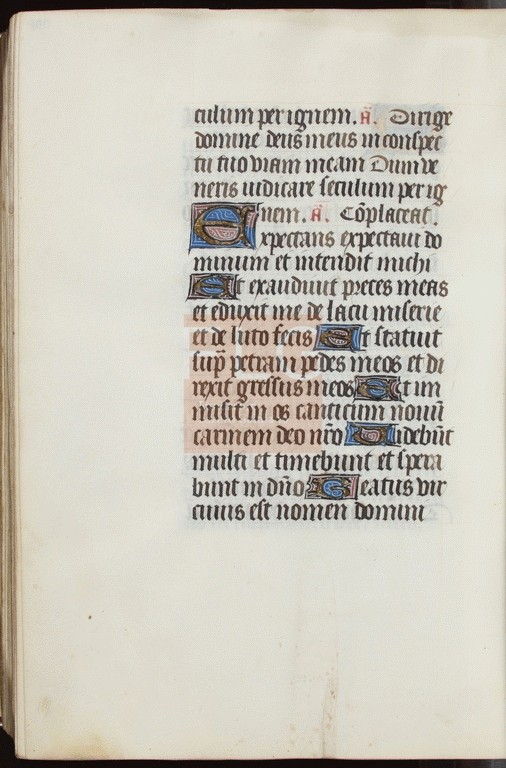 culum per ignem. A. Dirige
domine deus meus in conspec
tu tuo viam meam Dum ve
neris iudicare seculum per ig
nem. A. Cōplaceat.
Expectans expectaui do
minum et intendit michi
Et exaudiuit preces meas
et eduxit me de lacu miserie
et de luto fecis Et statuit
sup̄ petram pedes meos et di
rexit gressus meos Et im
misit in os canticum nouū
carmen deo nr̄o Videbūt
multi et timebunt et spera
bunt in dn̄o Beatus vir
cuius est nomen domini